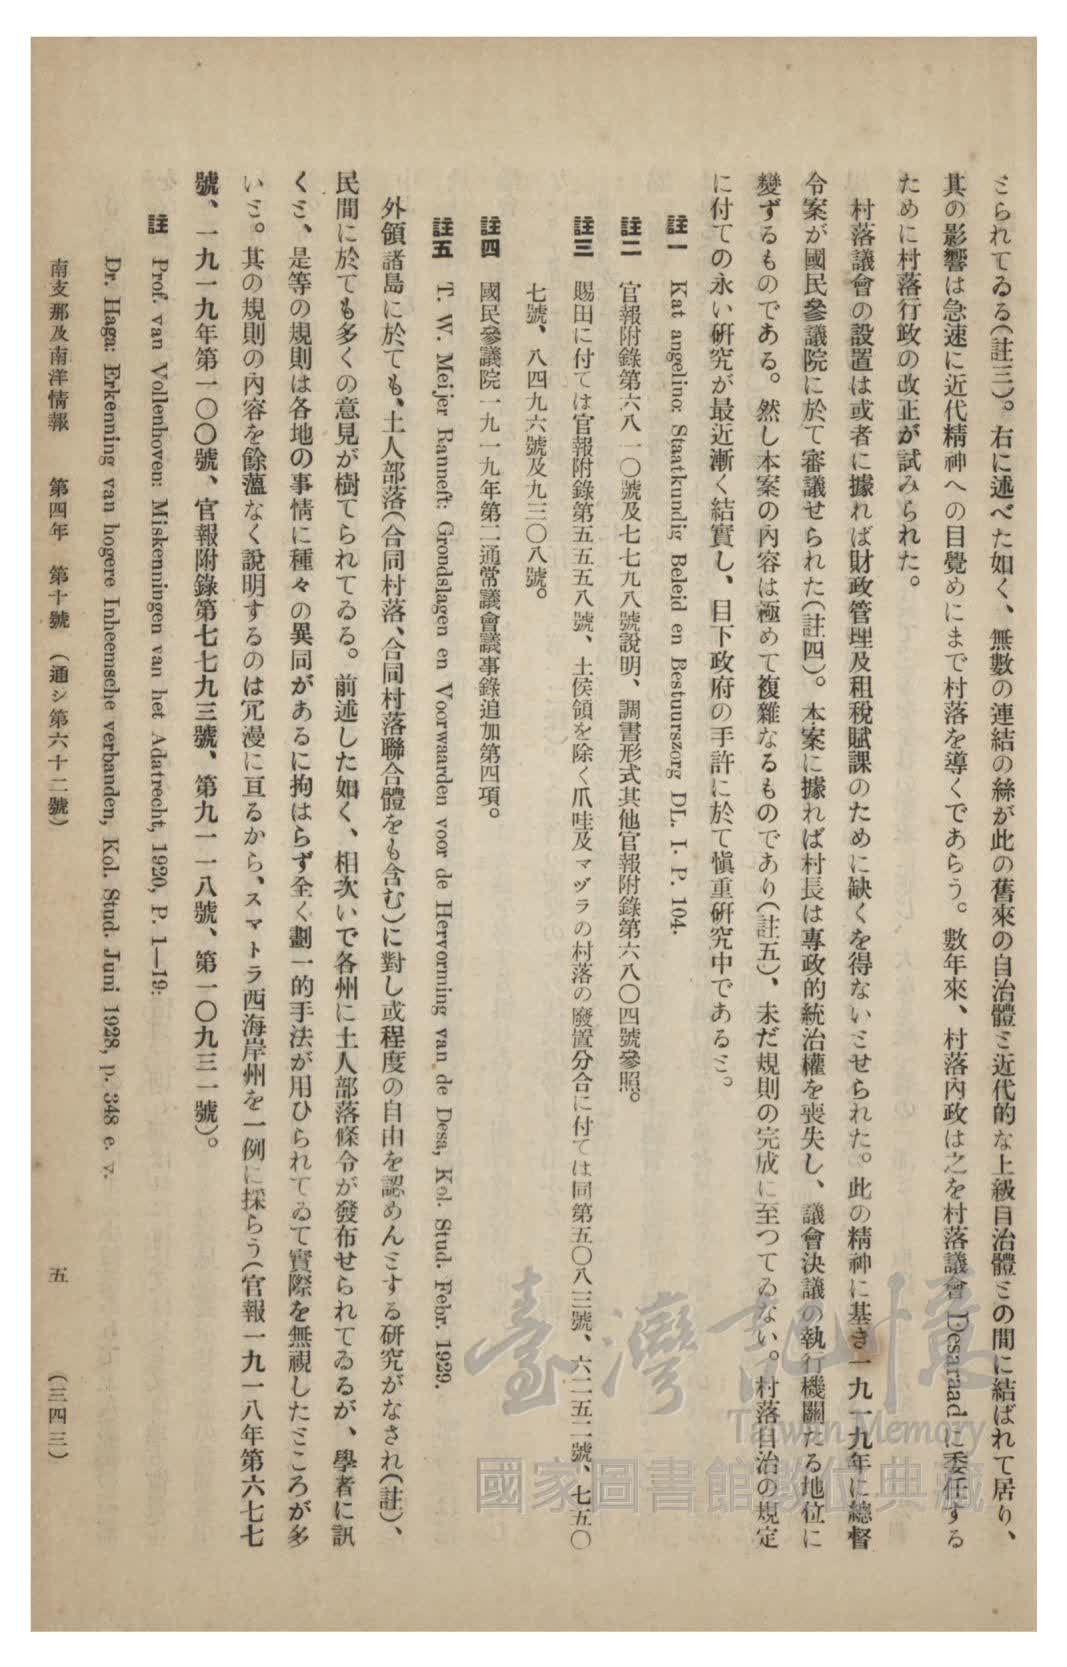 とられてゐる(註三)。右に述べた如く、無數の連結の絲が此の舊來の自治體と近代的な上級自治體との間に結ばれて居り、
其の影響は急速に近代精神への目覺めにまで村落を導くであらう。數年來、村落內政は之を村落議會 Desaraad に委任する
ために村落行政の改正が試みられた。
村落議會の設置は或者に據れば財政管理及租稅賦課のために缺くを得ないとせられた。此の精神に基き一九一九年に總督
令案が國民參議院に於て審議せられた(註四)。本案に據れば村長は專政的統治權を喪失し、議會決議の執行機關たる地位に
變ずるものである。然し本案の內容は極めて複雜なるものであり(註五)、未だ規則の完成に至つてゐない。村落自治の規定
に付ての永い硏究が最近漸く結實し、目下政府の手許に於て愼重硏究中であると。
註一 Kat angelino: Staatkundig Beleid en Bestuurszorg DL. I. P. 104.
註二 官報附錄第六八一〇號及七七九八號說明、調書形式其他官報附錄第六八〇四號參照。
註三 賜田に付ては官報附錄第五五五八號、土侯領を除く爪哇及マヅラの村落の廢置分合に付ては同第五〇八三號、六二五二號、七五〇
七號、八四九六號及九三〇八號。
註四 國民參議院一九一九年第二通常議會議事錄追加第四項。
註五 T. W. Meijer Ranneft: Grondslagen en Voorwaarden voor de Hervorming van de Desa, Kol. Stud. Febr. 1929.
外領諸島に於ても、土人部落(合同村落、合同村落聯合體をも含む)に對し或程度の自由を認めんとする硏究がなされ(註)、
民間に於ても多くの意見が樹てられてゐる。前述した如く、相次いで各州に土人部落條令が發布せられてゐるが、學者に訊
くと、是等の規則は各地の事情に種々の異同があるに拘はらず全く劃一的手法が用ひられてゐて實際を無視したところが多
いと。其の規則の內容を餘蘊なく說明するのは冗漫に亘るから、スマトラ西海岸州を一例に採らう(官報一九一八年第六七七
號、一九一九年第一〇〇號、官報附錄第七七九三號、第九一一八號、第一〇九三一號)。
註 Prof. van Vollenhoven: Miskenningen van het Adatrecht, 1920, P. 1—19:
Dr. Haga: Erkenning van hogere Inheemsche verbanden, Kol. Stud. Juni 1928, p. 348 e. v.
南支那及南洋情報 第四年 第十號 (通シ第六十二號) 五 (三四三)
臺灣記憶
Taiwan Memory
國家圖書館數位典藏